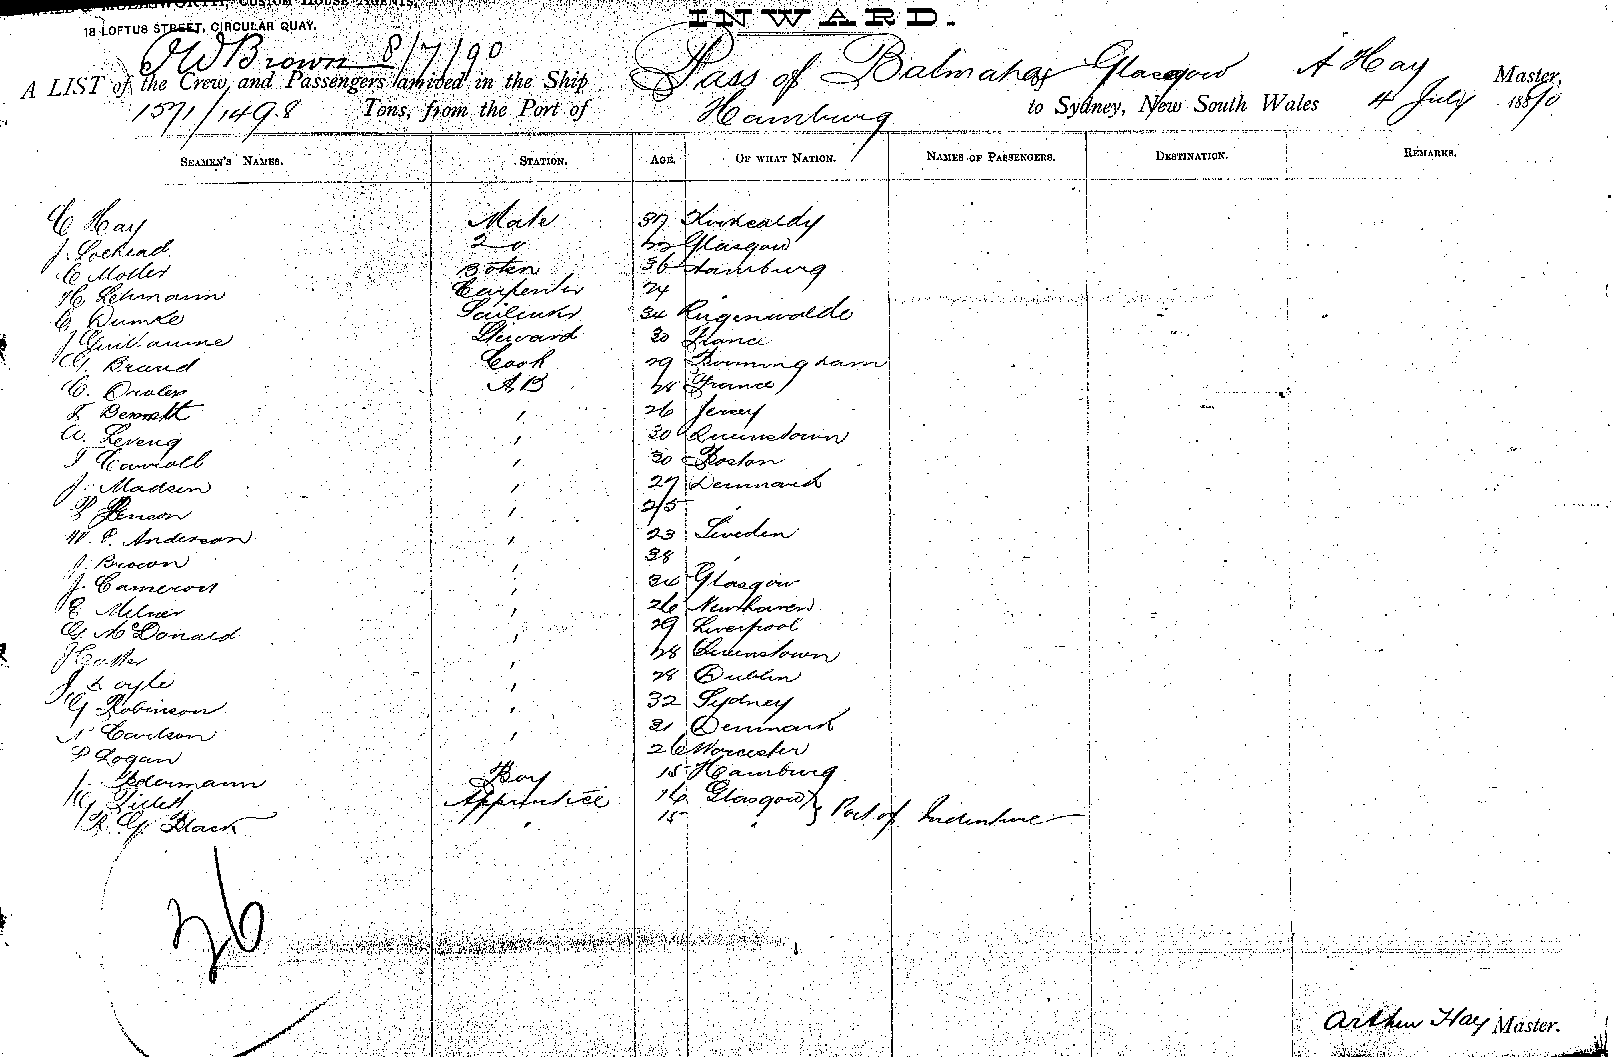 MOLESWORTH, CUSTOM HOUSE AGENTS,
18 LOFTUS STREET, CIRCULAR QUAY.
INWARD.
JWBrown 8/7/90
A LIST of the Crew and Passengers arrived in the Ship Pass of Balmaha of Glasgow A Hay Master,
1571/1498 Tons, from the Port of Hamburg to Sydney, New South Wales 4 July 1890
SEAMEN'S NAMES. STATION. AGE. OF WHAT NATION. NAMES OF PASSENGERS. DESTINATION. REMARKS.
C Hay Mate 37 Kirkcaldy
J. Lochead 2 o Glasgow
C Moller Botsn 36 Hamburg
H Lehmann Carpenter 24
C. Dumke 34 Rugenwalde
J Guillaume Steward 30 France
G. Braud Cook 29 Birmingham
C. AB 28 France
F Bennett " 26 Jersey
W. " 30 Queenstown
T Carroll " 30 Boston
J. Madsen " 27 Denmark
P Jenson " 25 "
W. P. Anderson " 23 Sweden
J. Brown " 38 "
J. Cameron " 34 Glasgow
E Milner " 26 Newhaven
G McDonald " 29 Liverpool
J " 28 Queenstown
J Doyle " 28 Dublin
G Robinson " 32 Sydney
N Carlson " 21 Denmark
P Logan " 26 Worcester
Boy 15 Hamburg
Apprentice 16 Glasgow } Port of Indenture
R. G. Black " 15 "
26
Arthur Hay Master.